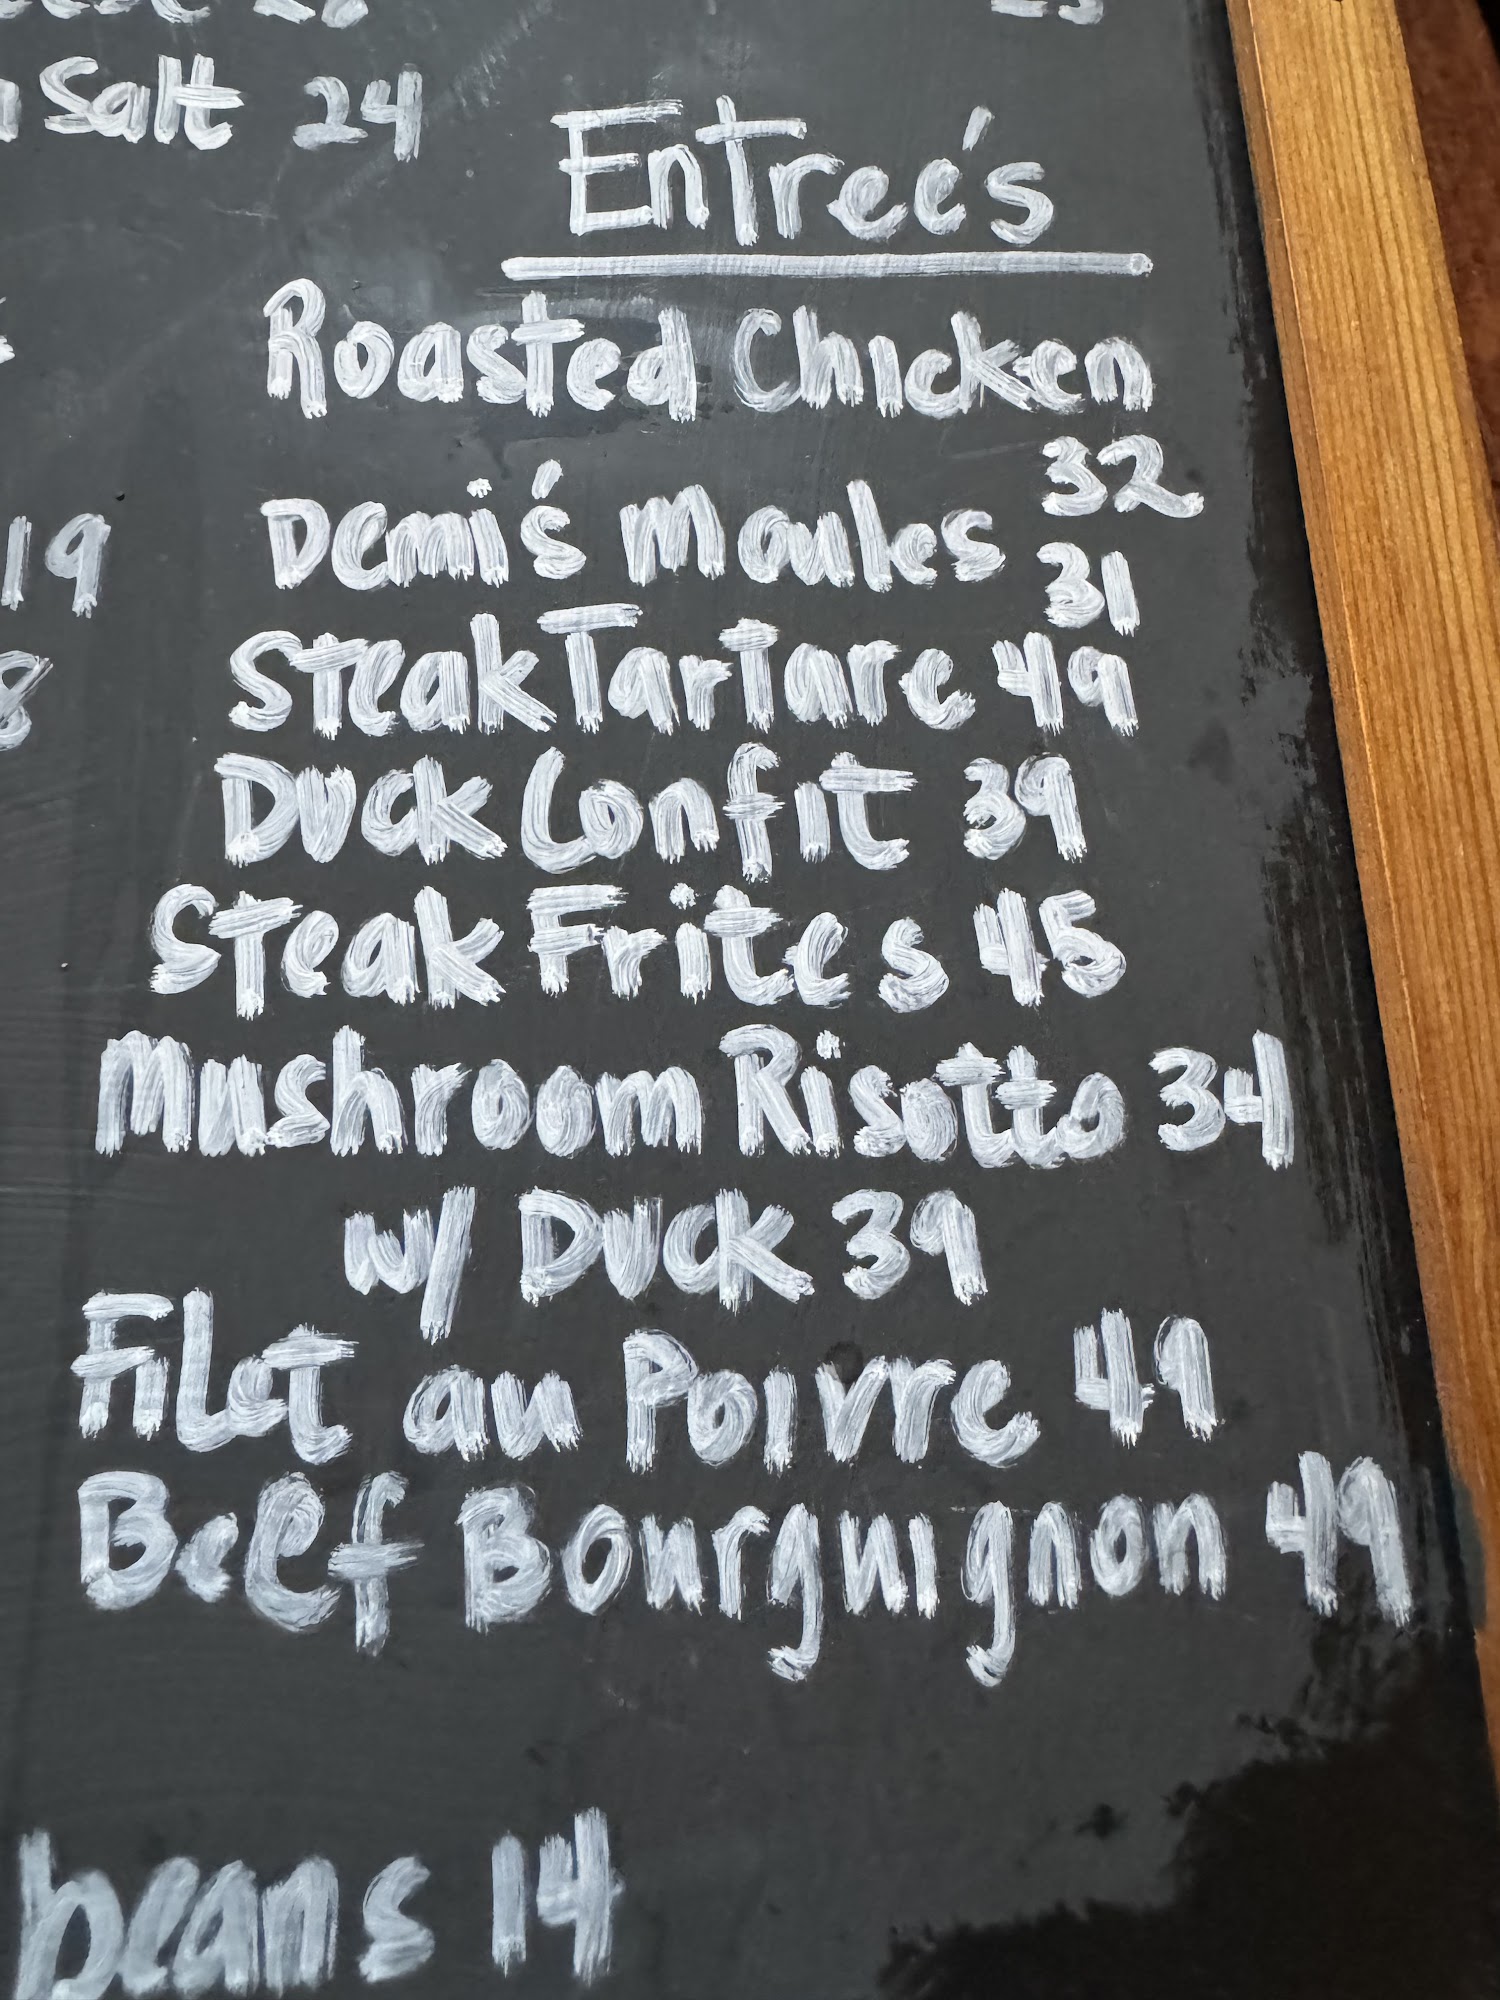 Salt 24
Entree's
Roasted Chicken
32
Demi's Moules
31
19
Steak Tartare 49
8
Duck Confit 39
Steak Frites 45
Mushroom Risotto 34
w/ Duck 39
Filet au Poivre 49
Beef Bourguignon 49
beans 14